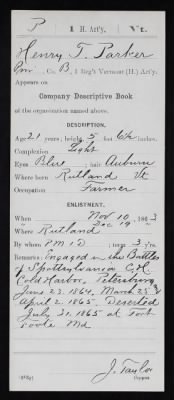 P | 1 H. Art'y. | Vt.
Henry T. Parker
Co. B, 1 Reg't Vermont (H.) Art'y.
Appears on
Company Descriptive Book
of the organization named above.
DESCRIPTION.
Age 21 years; height 5 feet 6½ inches.
Complexion Light
Eyes Blue; hair Auburn
Where born Rutland Vt.
Occupation Farmer
ENLISTMENT.
When Nov 10, 1863
Dec 19 "
Where Rutland
By whom P.M. 1 D; term 3 y'rs.
Remarks: Engaged in the Battles
of Spottsylvania C.H.
Cold Harbor, Petersburg
June 23, 1864, March 25 &
April 2, 1865. Deserted
July 31, 1865 at Fort
Foote Md
J. Taylor
Copyist.